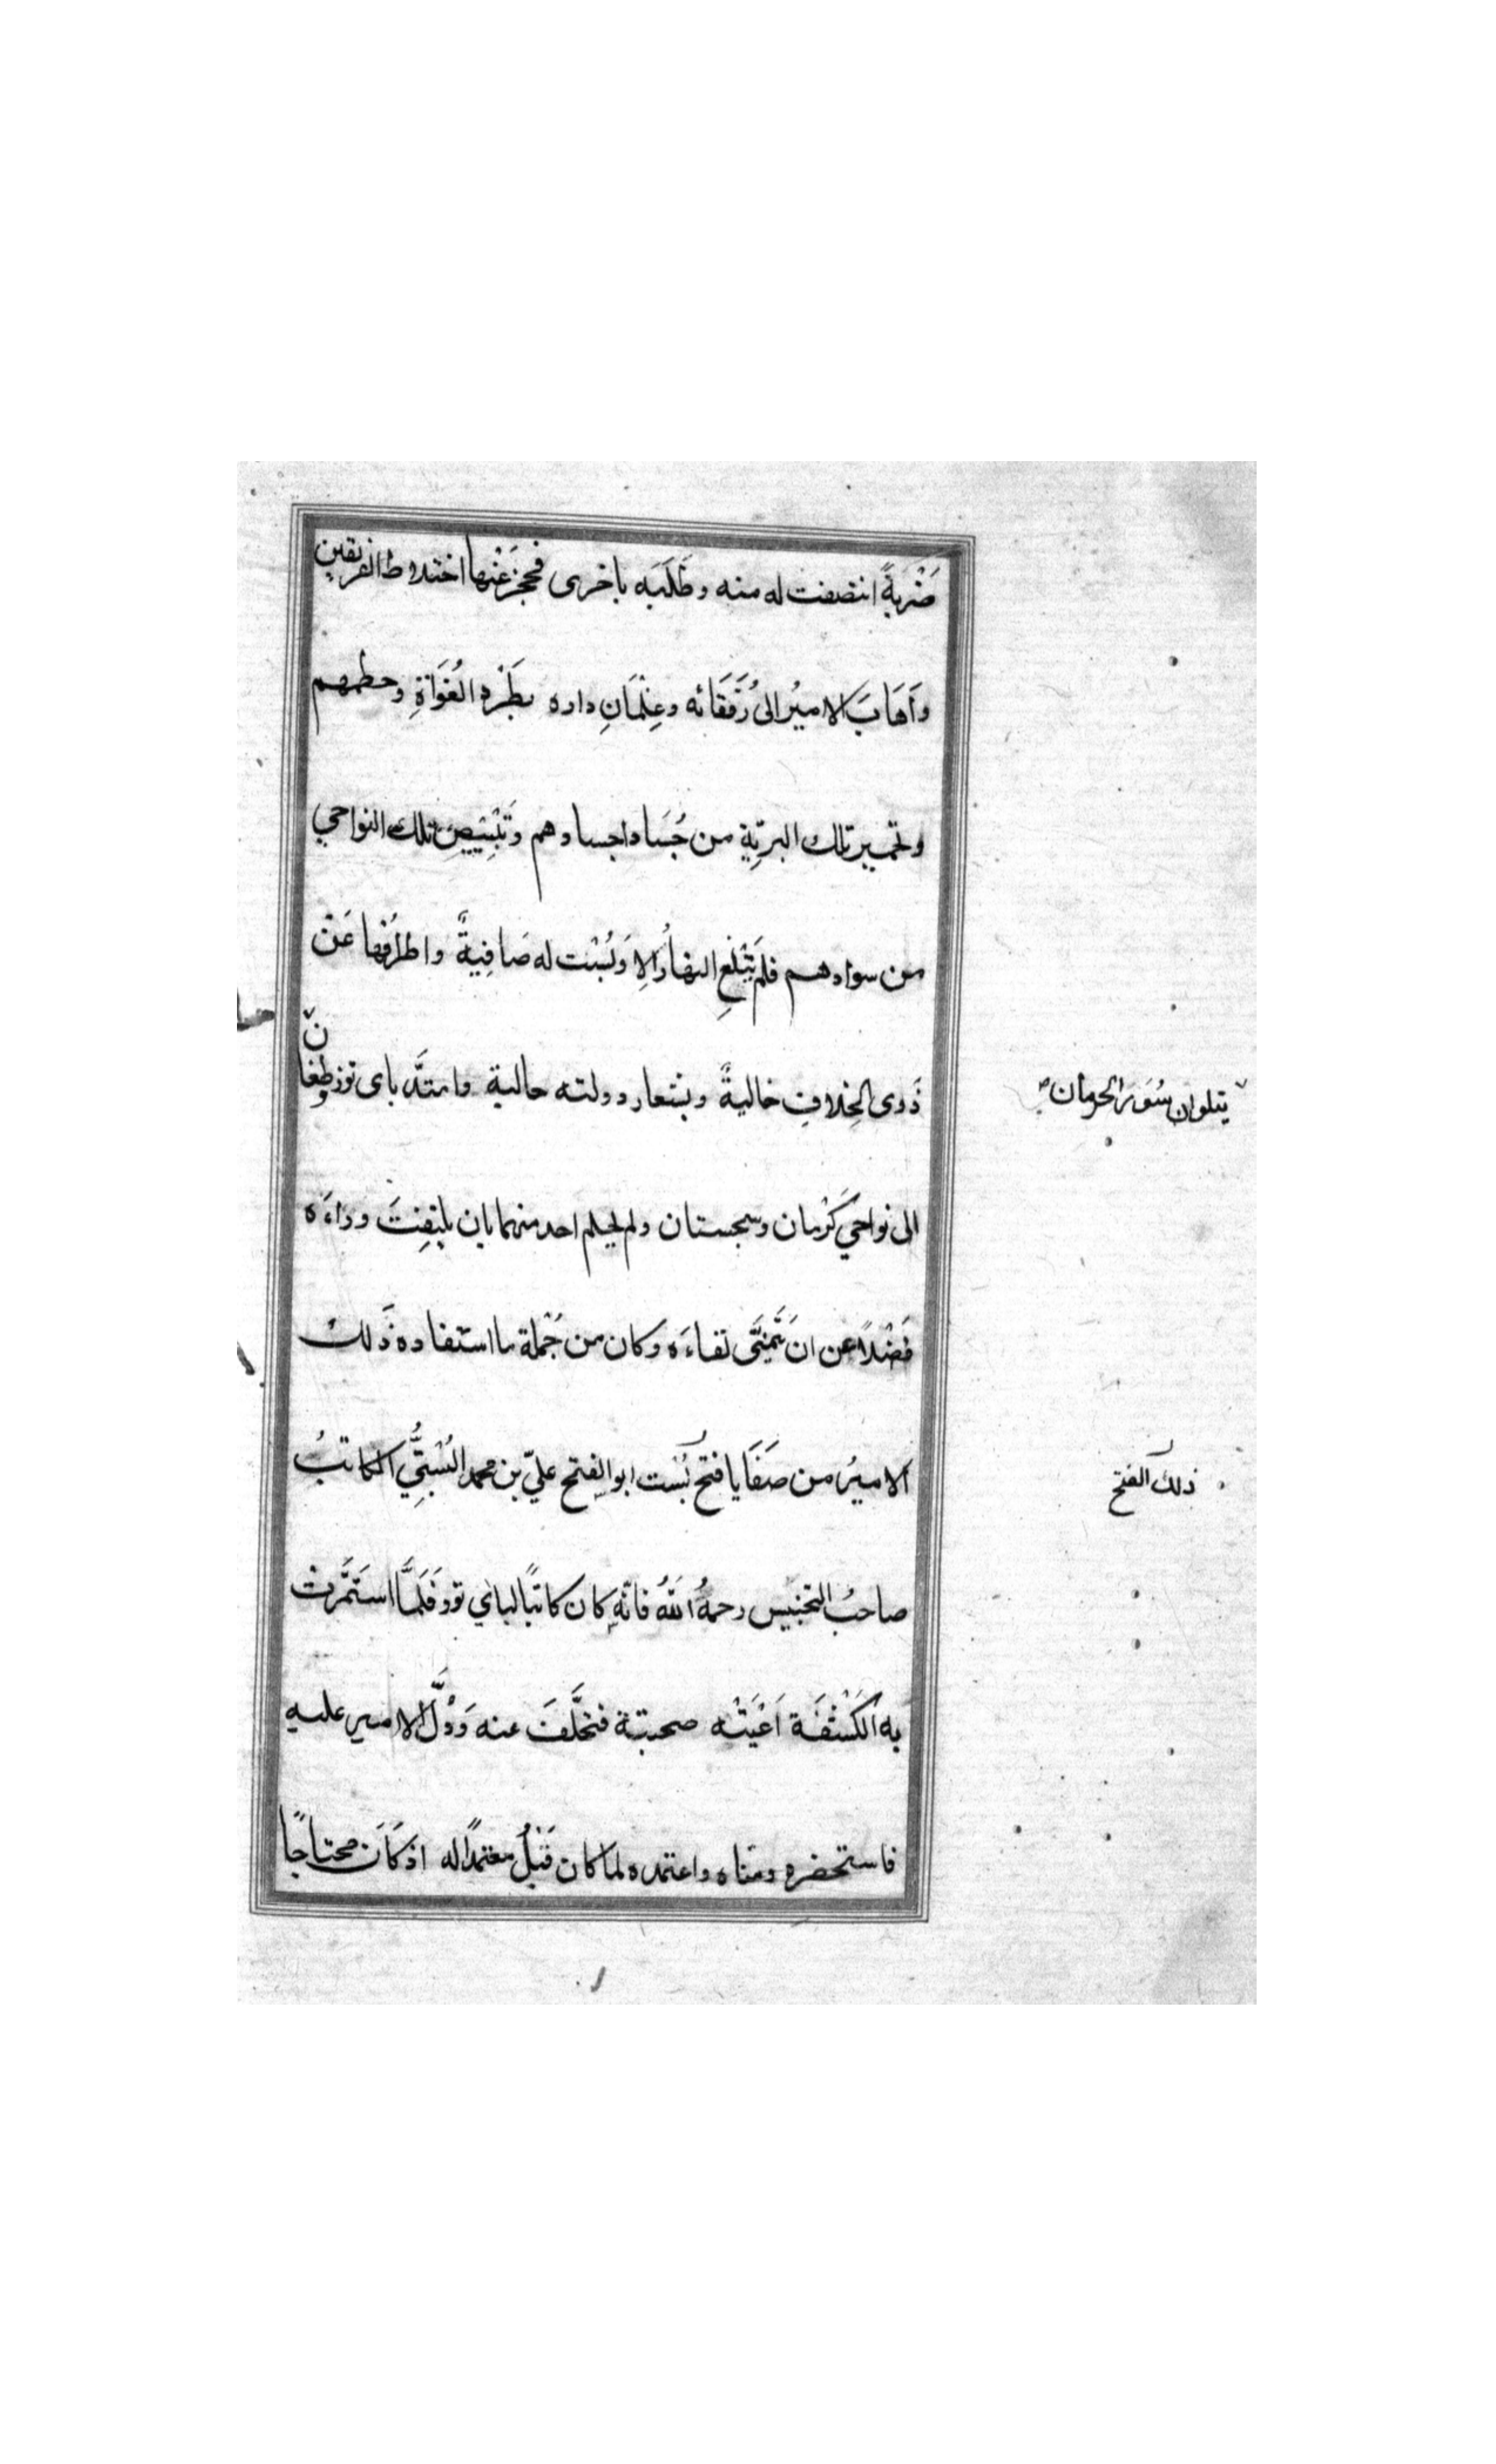 ضَرْبَةً انتصفت له منه وطَلَبَه باخرى فحجز عَنْها اختلاط الفريقين
وَاَهَابَ الاميرُ الى رُفَقَائه وغِلْمَانِ داره بطَرْدِ الغُوَاةِ وحطمهم
وتخمير تلك البرّيّة من جُسَاد اجسادهم وتَبْيِيضِ تلك النواحي
من سوادهم فلم يَبْلُغِ النهارُ الا وبُسْت له صَافِيةً واطرافُها عَنْ
ذَوى الخِلافِ خاليةً وبشعار دولته حالية وامتدَّ باى توز وطغان
يتلوان سُوَر الحرمان
الى نواحي كَرْمان وسجستان ولم يحلم احد منهما بان يلتفِتَ وراءَه
فَضْلاً عن ان يَتَمَنَّى لقاءَه وكان من جُمْلة ما استفاده ذَلك
الاميرُ من صَفَايا فتح بُسْت ابو الفتح عليّ بن محمد البُسْتِيُّ الكاتبُ
ذلك الفتح
صاحبُ التجنيس رحمهُ اللهُ فانّه كان كاتبًا لباي توز فَلَمَّا استَمَّرت
به الكَشْفَة اَعْيَتْه صحبتة فتخلَّفَ عنه وَدُلَّ الامير عليه
فاستحضره ومنّاه واعتمده لما كان قَبْلُ معتمدًا له اذ كَانَ محتاجًا